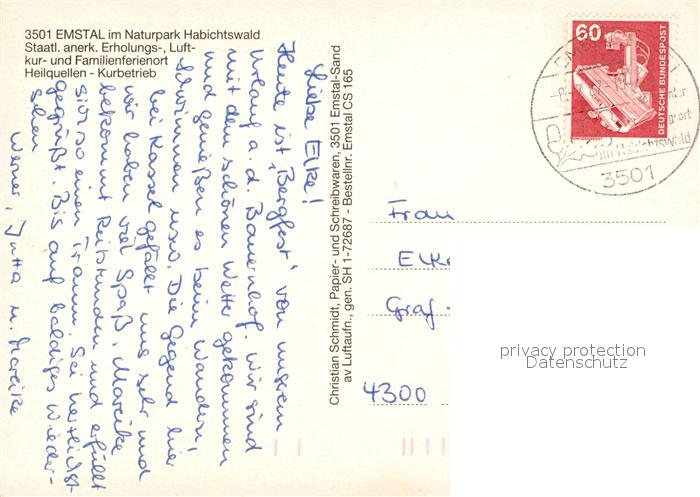 3501 EMSTAL im Naturpark Habichtswald
Staatl. anerk. Erholungs-, Luft-
kur- und Familienferienort
Heilquellen - Kurbetrieb
Liebe Elke!
Heute ist „Bergfest" von unserem
Urlaub a. d. Bauernhof. Wir sind
mit dem schönen Wetter gekommen
und genießen es beim Wandern,
Schwimmen usw. Die Gegend hier
bei Kassel gefällt uns sehr und
wir haben viel Spaß. Mareike
bekommt Reitstunden und erfüllt
sich so einen Traum. Sei herzlichst
gegrüßt. Bis auf baldiges Wieder-
sehen
Werner, Jutta u. Mareike
Christian Schmidt, Papier- und Schreibwaren, 3501 Emstal-Sand
av Luftaufn., gen. SH 1-72687 - Bestellnr. Emstal CS 165
60
DEUTSCHE BUNDESPOST
im Habichtswald
3501
Frau
Elke
Graf-
4300
privacy protection
Datenschutz